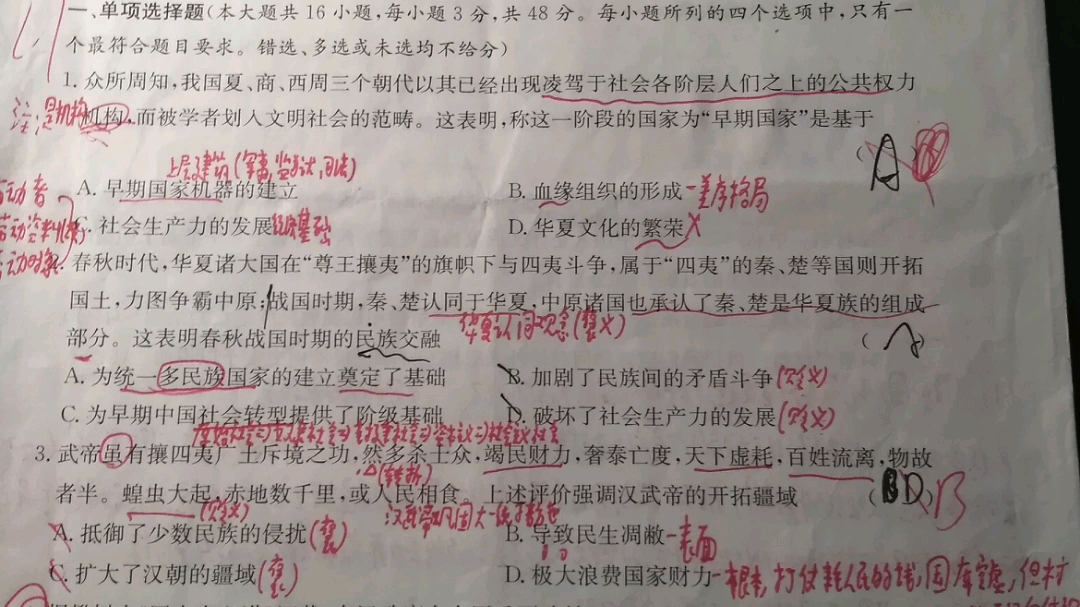 一、单项选择题(本大题共16小题,每小题3分,共48分。每小题所列的四个选项中,只有一
个最符合题目要求。错选、多选或未选均不给分)
1. 众所周知,我国夏、商、西周三个朝代以其已经出现凌驾于社会各阶层人们之上的公共权力
注:是机构
机构,而被学者划入文明社会的范畴。这表明,称这一阶段的国家为“早期国家”是基于
(A
上层建筑
A. 早期国家机器的建立 B. 血缘组织的形成-差序格局
C. 社会生产力的发展经济基础 D. 华夏文化的繁荣X
春秋时代,华夏诸大国在“尊王攘夷”的旗帜下与四夷斗争,属于“四夷”的秦、楚等国则开拓
国土,力图争霸中原;战国时期,秦、楚认同于华夏,中原诸国也承认了秦、楚是华夏族的组成
部分。这表明春秋战国时期的民族交融 华夏认同观念(褒义) (A)
A. 为统一多民族国家的建立奠定了基础 B. 加剧了民族间的矛盾斗争(贬义)
C. 为早期中国社会转型提供了阶级基础 D. 破坏了社会生产力的发展(贬义)
3. 武帝虽有攘四夷广土斥境之功,然多杀士众,竭民财力,奢泰亡度,天下虚耗,百姓流离,物故
(转折)
者半。蝗虫大起,赤地数千里,或人民相食。上述评价强调汉武帝的开拓疆域 (BD)B
(贬义)
A. 抵御了少数民族的侵扰(褒) B. 导致民生凋敝-表面
C. 扩大了汉朝的疆域(褒) D. 极大浪费国家财力-根本,打仗耗人民的钱,国库空虚,但对